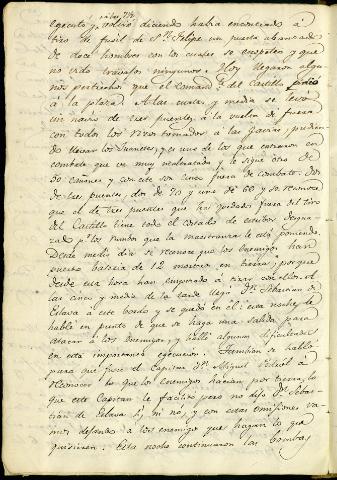 a las 7½
executó, y volvió diciendo havia encontrado á
tiro de fusil de Sⁿ Felipe un puesto abanzado
de doce hombres con los cuales se escopeteó y que
no vido travajos ningunos. Hoy llegaron algu-
nos pertrechos que el comandᵗᵉ del Castillo pidió
á la plaza. A las cuatro y media se levó
un navio de tres puentes, á la vuelta de fuera
con todos los vivos tomados á las gavias, pudien-
do llevar los Juanetes, y es uno de los que entraron en
combate que va muy maltratado y le sigue otro de
50 cañones y con este son cinco fuera de combate. Dos
de tres puentes, dos de 70 y uno de 60 y se reconoce
que el de tres puentes que ha quedado fuera del tiro
del Castillo tiene todo el costado de estribor desgua-
zado pʳ los rumbos que la maestranza le está poniendo.
Desde medio dia se reconoce que los enemigos han
puesto bateria de 12 morteros en tierra, porque
desde esta hora han empezado á tirar con ellos. A
las cinco y media de la tarde llegó Dⁿ Sebastian de
Eslava á este bordo y se quedó en él: esta noche le
hablé en punto de que se haga una salida para
atacar á los enemigos, y halló algunas dificultades
en esta importante egecucion. Tambien se habló
para que fuese el Capitan Dⁿ Miguel Pedrol á
reconocer lo que los enemigos hacian por tierra, lo
que este Capitan le facilitó pero no dijo Dⁿ Sebas-
tian de Eslava si, ni no, y con estas omisiones va-
mos dejando á los enemigos que hagan lo que
quisieren: Esta noche continuaron las bombas